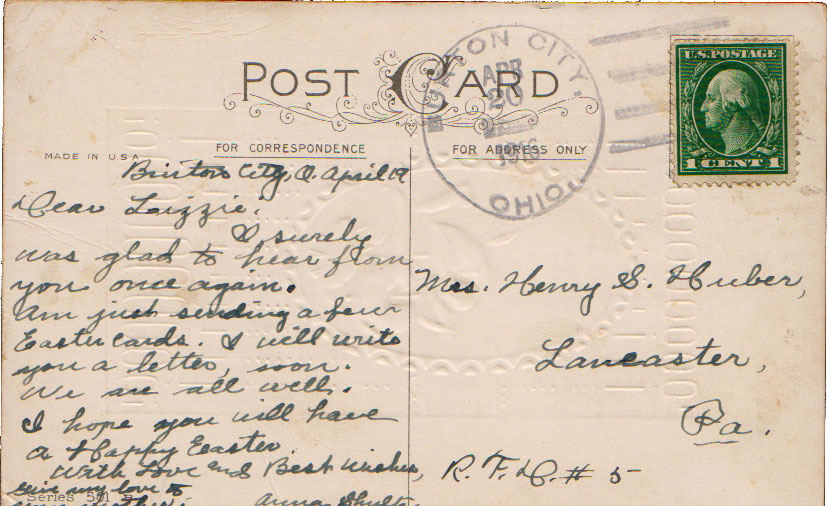 POST CARD
TON CITY.
APR
20
1916
OHIO
U.S. POSTAGE
1 CENT 1
MADE IN U S A
FOR CORRESPONDENCE
FOR ADDRESS ONLY
Burton City, O. April 19
Dear Lizzie:
I surely
was glad to hear from
you once again.
Am just sending a few
Easter cards. I will write
you a letter, soon.
We are all well.
I hope you will have
a Happy Easter
With Love and Best Wishes,
give my love to
Series 501
your mother.
Anna
Mrs. Henry S. Huber,
Lancaster,
Pa.
R. F. D. # 5